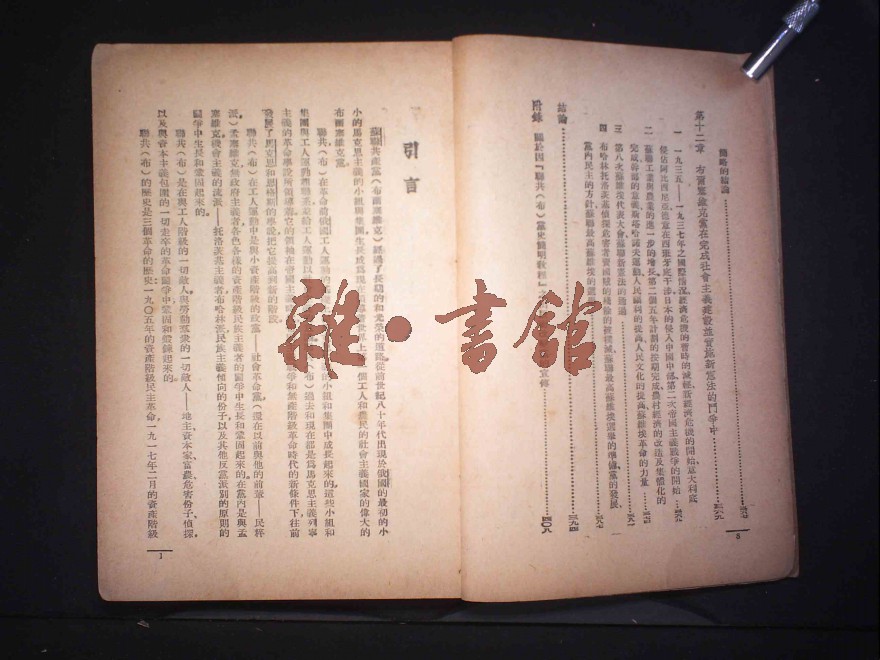 簡略的結論…………三六七
第十二章 布爾塞維克黨在完成社會主義建設並實施新憲法的鬥爭中…………三六九
一 一九三五——一九三七年之國際情況。經濟危機的暫時的減輕。新經濟危機的開始。意大利底
侵佔阿比西尼亞。德意在西班牙底干涉。日本的侵入中國中部。第二次帝國主義戰爭的開始…三六九
二 蘇聯工業與農業的進一步的增長。第二個五年計劃的按期完成。農村經濟的改造及集體化的
完成。幹部的意義。斯塔哈諾夫運動。人民福利的提高。人民文化的提高。蘇維埃革命的力量…
三 第八次蘇維埃代表大會。蘇聯新憲法的通過…………三八一
四 布哈林托洛茨基偵探危害者賣國賊的殘餘的被撲滅。蘇聯最高蘇維埃選舉的準備。黨的發展
黨內民主的方針。蘇聯最高蘇維埃的選舉…………三八七
結論…………三九四
附錄 關於因『聯共(布)黨史簡明教程』宣傳…………四〇八
5
引言
蘇聯共產黨(布爾塞維克)經過了長期的和光榮的道路,從前世紀八十年代出現於俄國的最初的小
小的馬克思主義的小組與集團,生長成為現在世界上第一個工人和農民的社會主義國家的偉大的
布爾塞維克黨。
聯共(布)在革命前俄國工人運動的小組和集團中成長起來的。這些小組和
集團與工人運動給工人運動以(布)過去和現在都是為馬克思主義列寧
主義的革命學說所領導着。它的領袖在帝國主義爭和無產階級革命時代的新條件下往前
發展了馬克思和恩格斯的學說,把它提高到新的階段。
聯共(布)在工人運動中是與小資產階級的政黨——社會革命黨(還在以前與他的前輩——民粹
派)、孟塞維克、無政府主義者、各色各樣的資產階級民族主義者的鬥爭中生長和鞏固起來的。在黨內是與孟
塞維克機會主義的流派——托洛茨基主義者、布哈林派、民族主義傾向的份子以及其他反黨派別的原則的
鬥爭中生長和鞏固起來的。
聯共(布)是在與工人階級的一切敵人,與勞動羣衆的一切敵人——地主、資本家、富農、危害份子、偵探
以及與資本主義包圍的一切走卒的革命鬥爭中鞏固和鍛鍊起來的。
聯共(布)的歷史是三個革命的歷史:一九〇五年的資產階級民主革命,一九一七年二月的資產階級
1
雜·書館